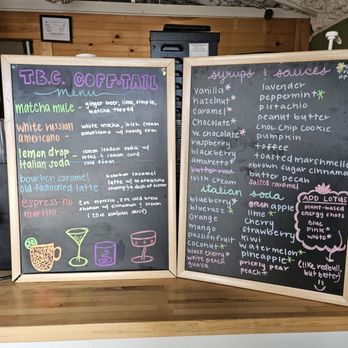 T.B.C. COFF-TAIL
menu
matcha mule - ginger beer, lime, simple,
matcha topped
white russian
americano - white mocha, irish cream
americano w/ heavy cream
lemon drop
italian soda - lemon italian soda w/
cold foam
bourbon caramel
old-fashioned latte
bourbon caramel
latte w/ maraschino
cherry & dash of
espress-no
martini
2oz espresso, 2oz cold brew
cinnamon + cream
syrups & sauces
vanilla*
hazelnut*
caramel
chocolate*
w. chocolate*
raspberry
blackberry
amaretto
irish cream
lavender
peppermint*
pistachio
peanut butter
choc chip cookie
pumpkin
toffee
toasted marshmallow
brown sugar cinnamon
butter pecan
salted caramel
italian soda
blueberry
bluerazz*
orange
mango
passionfruit
coconut*
black cherry
white peach
guava
green apple
lime*
cherry
strawberry
kiwi
watermelon*
pineapple*
prickly pear
peach*
ADD LOTUS
plant-based
energy shots
blue
pink*
white*
(like redbull,
but better)